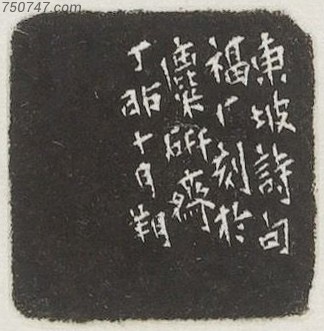 750747.com
東坡詩句
福厂刻於
麋研齋
丁卯十月朔